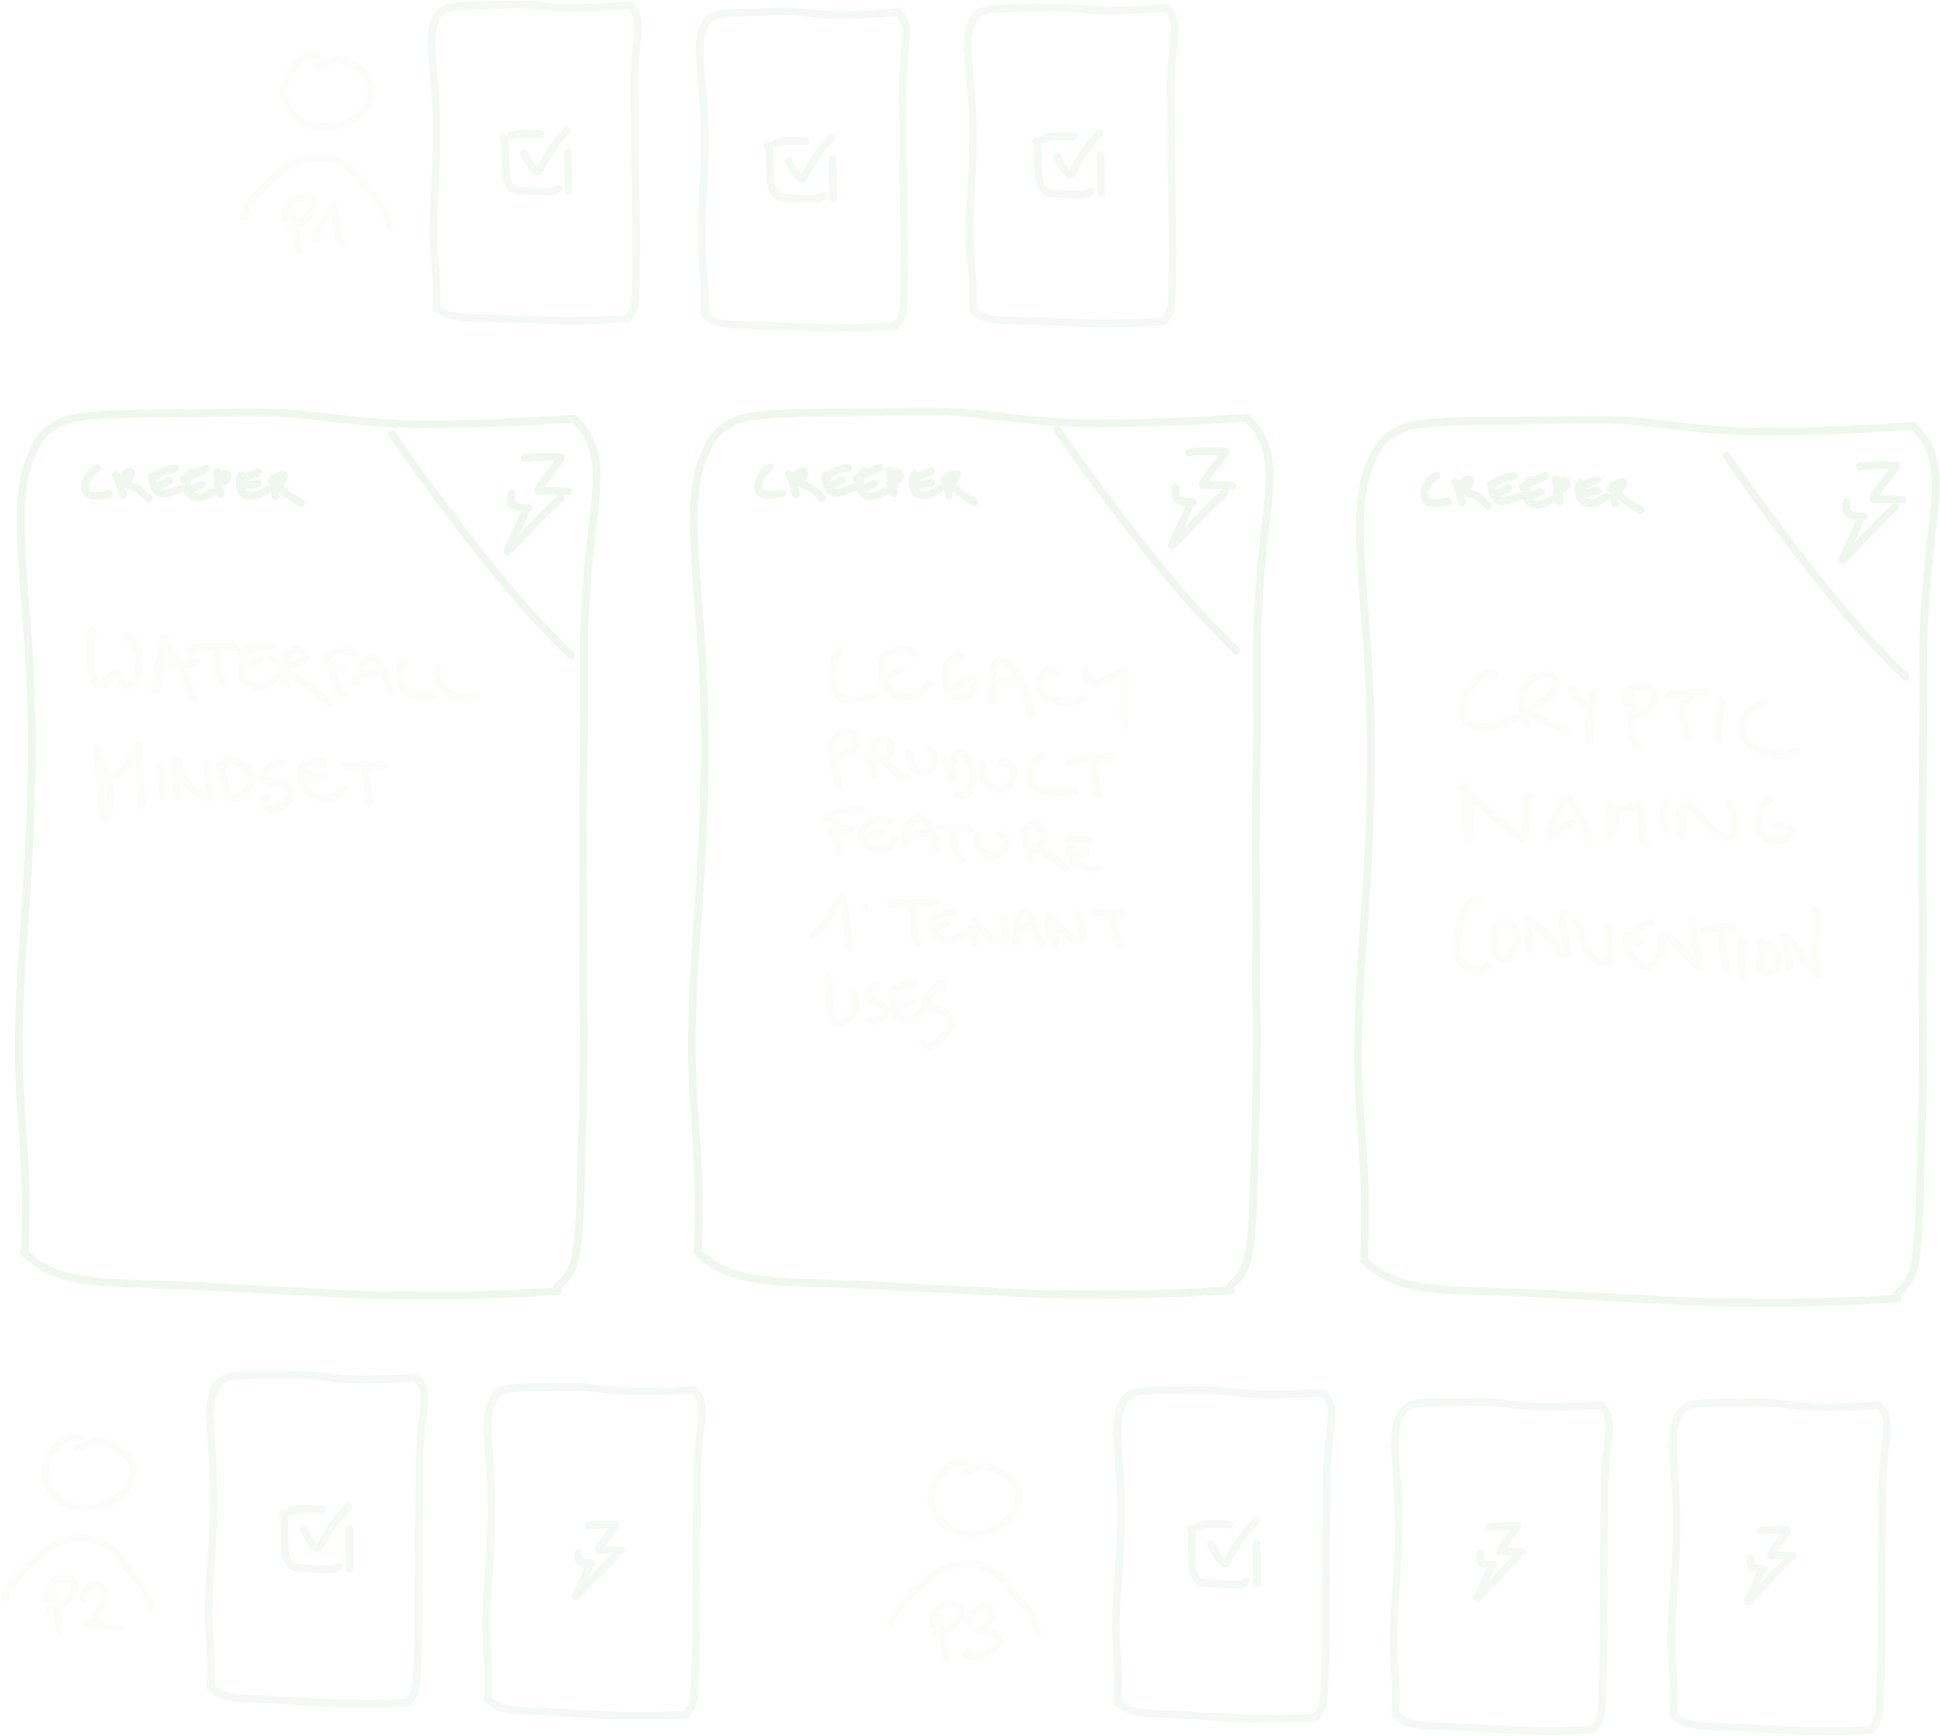 P1
CREEPER
WATERFALL
MINDSET
CREEPER
LEGACY
PRODUCT
FEATURE
1 TENANT
USES
CREEPER
CRYPTIC
NAMING
CONVENTION
P2
P3